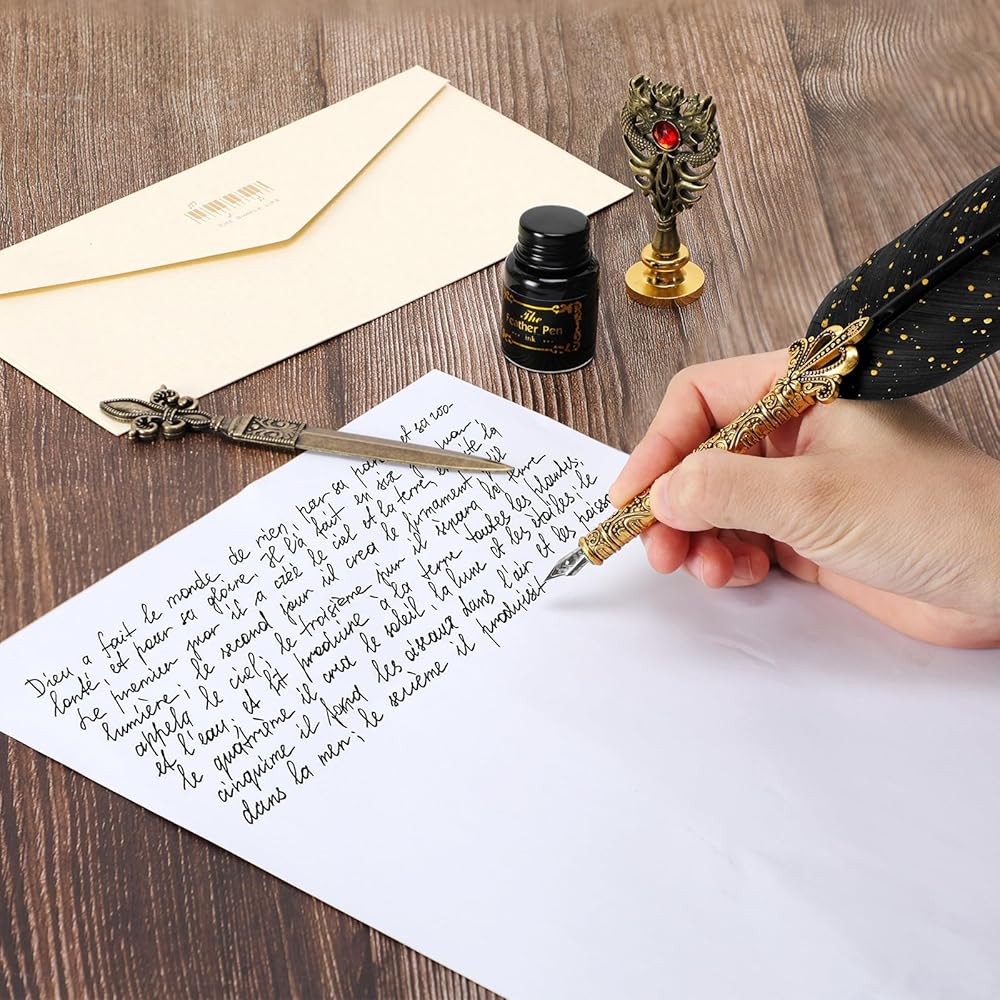 THE SIMPLE LIFE
The
Feather Pen
Ink
Dieu a fait le monde de rien, par sa par et sa vo-
lonté, et pour sa gloire. Il l'a fait en six pour
Le premier jour il a créé le ciel et la terre la
lumière; le second jour il crea le firmament
appela le ciel; le troisième jour il separa la terre
et l'eau, et fit produire à la terre toutes les plandes.
le quatrième il crea le soleil, la lune et les étoiles; le
cinquime il fond les oiseaux dans l'air et les poisso
dans la men; le sexième il produisit